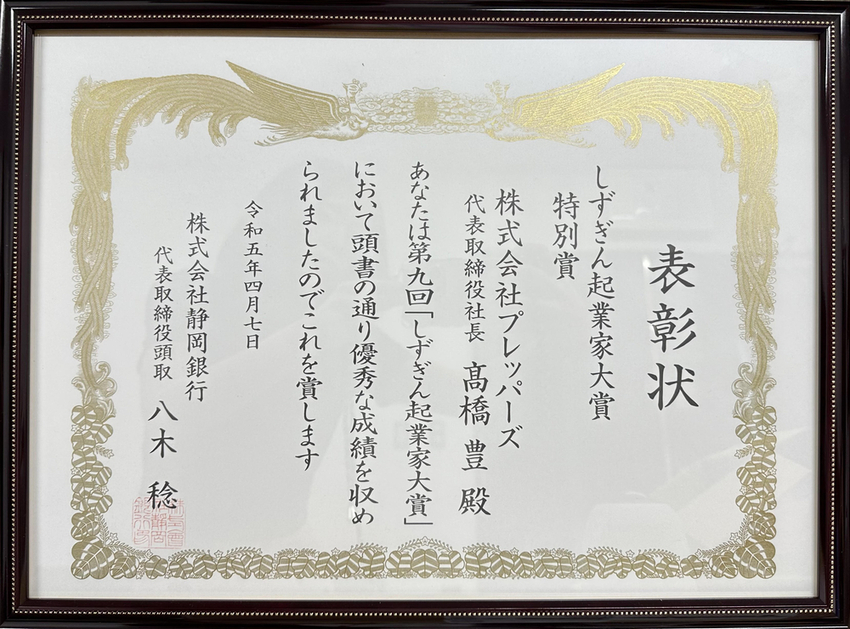 表彰状
しずぎん起業家大賞
特別賞
株式会社プレッパーズ
代表取締役社長 髙橋 豊 殿
あなたは第九回「しずぎん起業家大賞」
において頭書の通り優秀な成績を収め
られましたのでこれを賞します
令和五年四月七日
株式会社静岡銀行
代表取締役頭取 八木 稔